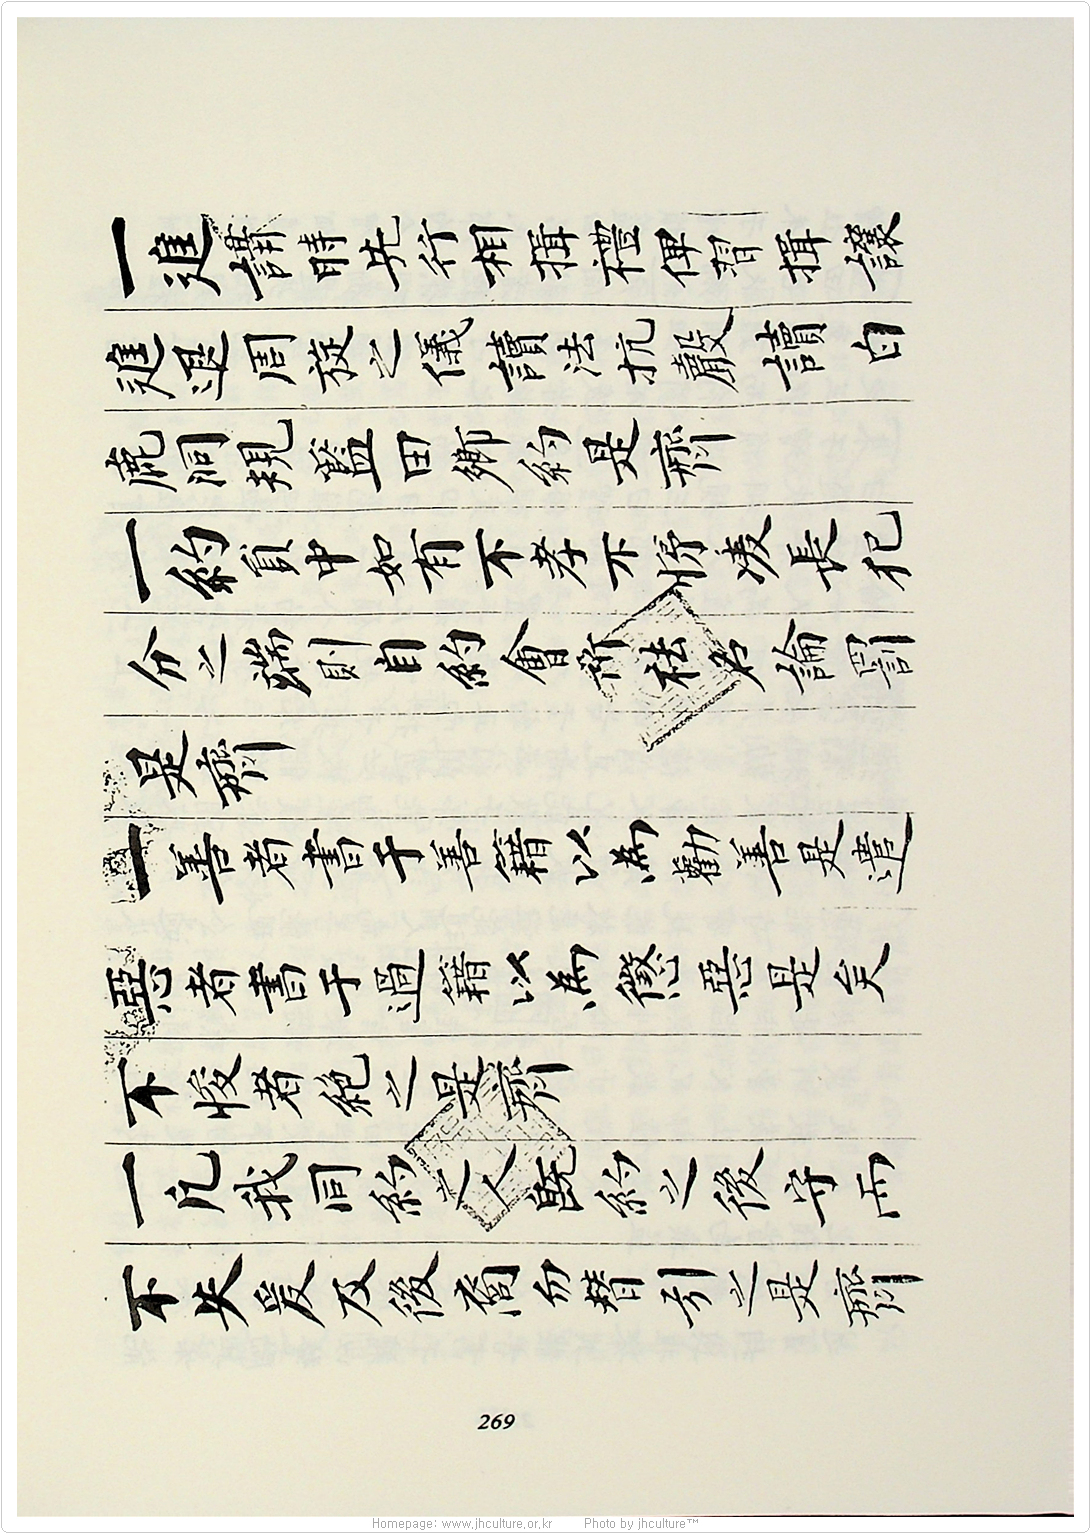 一進講時先行相揖禮俾習揖讓
進退周旋之儀讀法抗嚴讀白
鹿洞規藍田鄉約是齊
一約員中如有不孝不悌凌長犯
分之端則自約會所祛名論罰
是齊
一善者書于善籍以為勸善是遣
惡者書于過籍以為懲惡是矣
不悛者絶之是齊
一凡我同約之人既約之後守而
不失爰及後裔勿替引之是齊
269
Homepage: www.jhculture.or.kr Photo by jhculture™